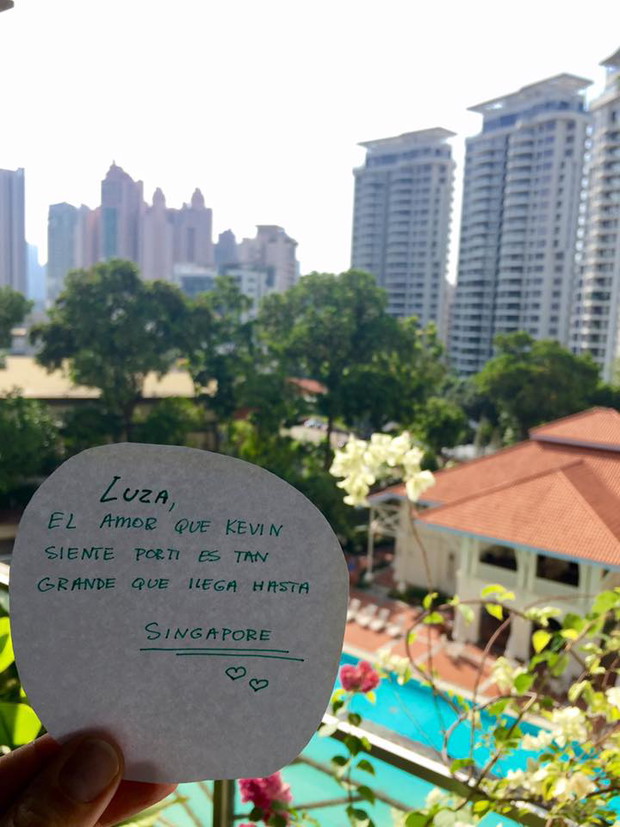 LUZA,
EL AMOR QUE KEVIN
SIENTE PORTI ES TAN
GRANDE QUE LLEGA HASTA
SINGAPORE